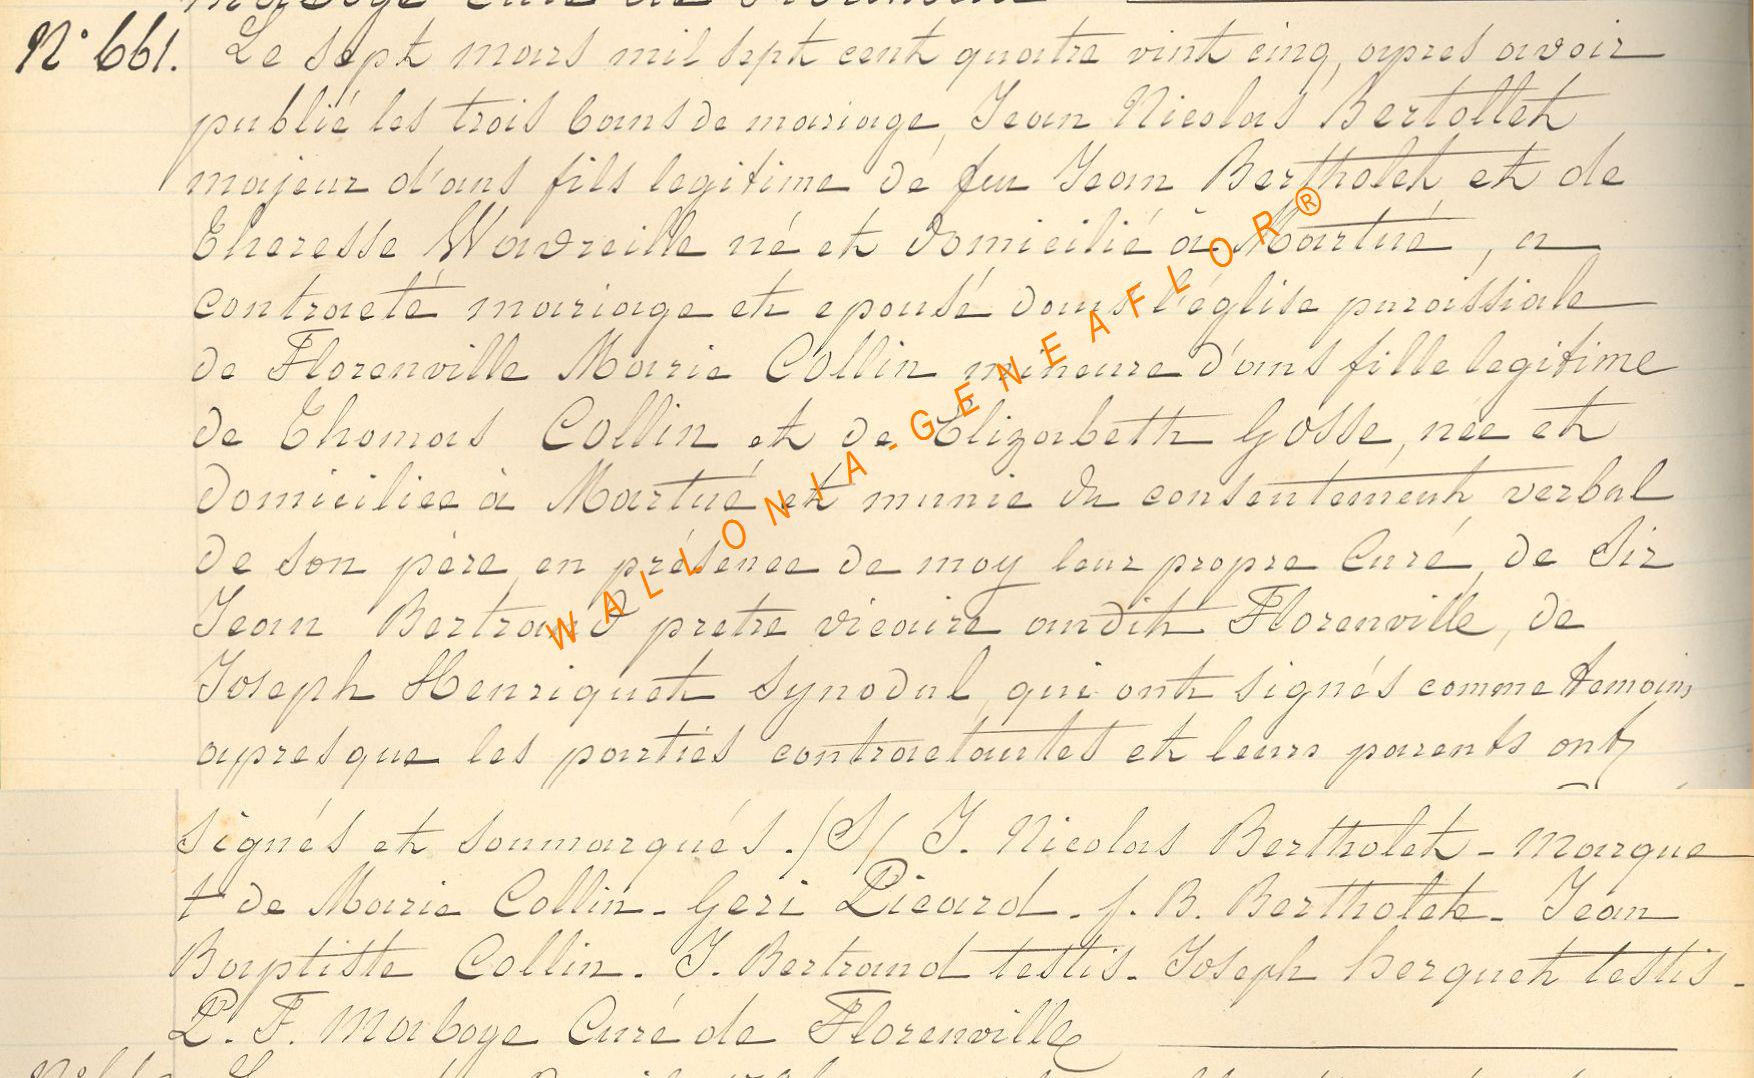 N° 661. Le sept mars mil sept cent quatre vint cinq, apres avoir
publié les trois bans de mariage, Jean Nicolas Bertollet
majeur d'ans fils legitime de feu Jean Bertholet et de
Theresse Wavreille né et domicilié à Martué, a
contracté mariage et epousé dans l'église paroissiale
de Florenville Marie Collin mineure d'ans fille legitime
de Thomas Collin et de Elizabeth Gosse, née et
domiciliee à Martué et munie du consentement verbal
de son père, en présence de moy leur propre Curé, de Sir
Jean Bertrand pretre vicaire audit Florenville, de
Joseph Henriquet synodal, qui ont signés comme temoins
apres que les partiés contractantes et leurs parents ont
signés et soumarqués. /S/ J. Nicolas Bertholet - marque
† de Marie Collin - Geri Picard - J. B. Bertholet - Jean
Baptiste Collin - J. Bertrand testis - Joseph herquet testis -
P. F. Maboge Curé de Florenville
WALLONIA-GENEAFLOR®